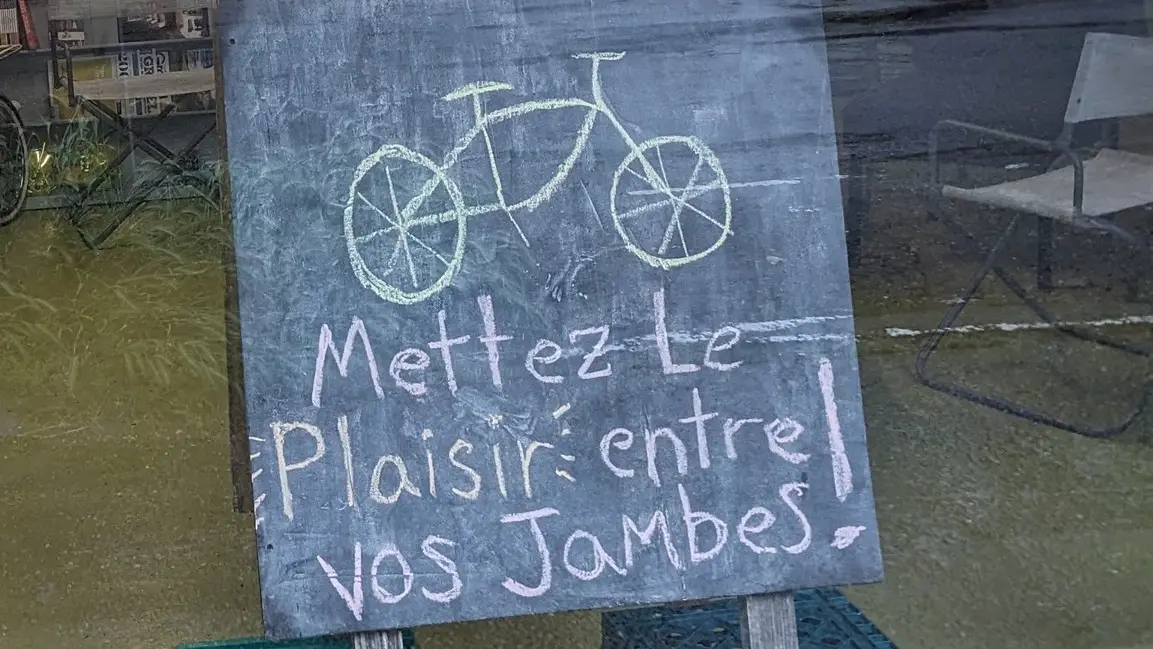 Mettez Le
Plaisir entre!
vos Jambes.